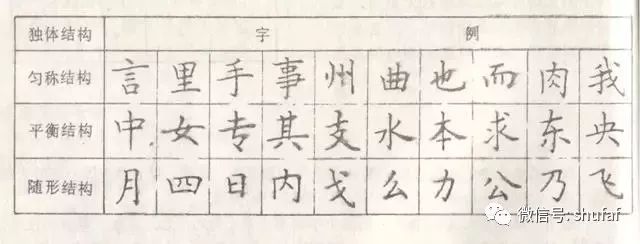 独体结构 字 例
匀称结构 言 里 手 事 州 曲 也 而 肉 我
平衡结构 中 女 专 其 支 水 本 求 东 央
随形结构 月 四 日 内 戈 么 力 公 乃 飞
微信号: shufaf